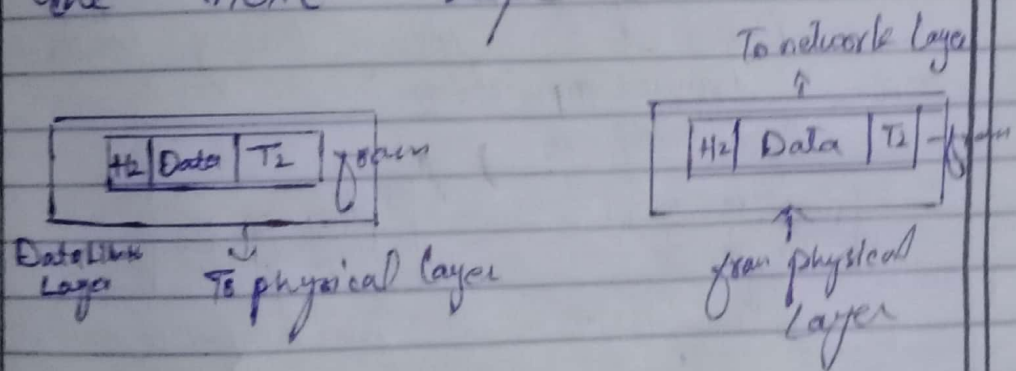 To network Layer
H2 Data T2 fram
H2 Data T2
Data Link
Layer
To physical layer
from physical
Layer